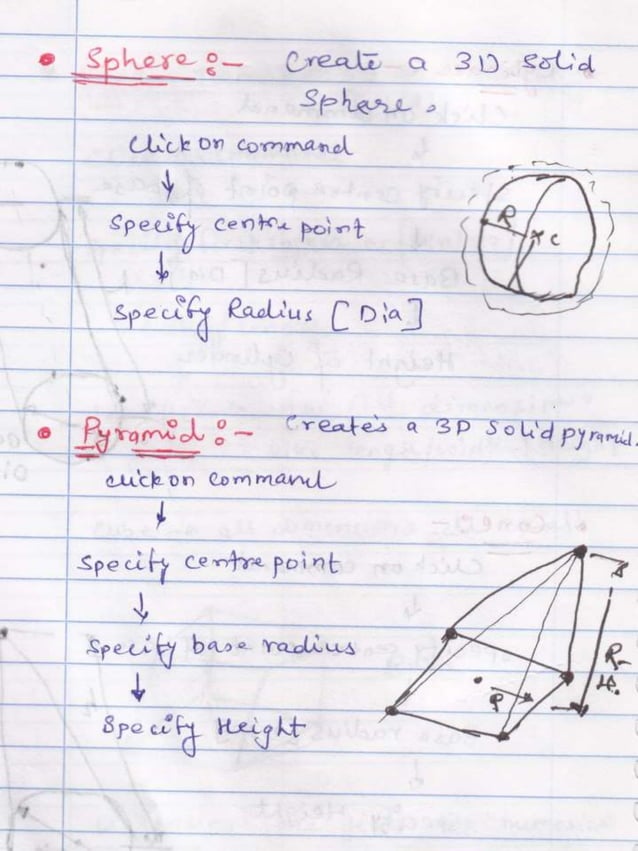 • Sphere :- Create a 3D Solid
Sphare.
Click on command
↓
Specify centre point
↓
Specify Radius [Dia]
R
C
• Pyramid :- Creates a 3D Solid pyramid.
click on command
↓
Specify centre point
↓
Specify base radius
↓
Specify Height